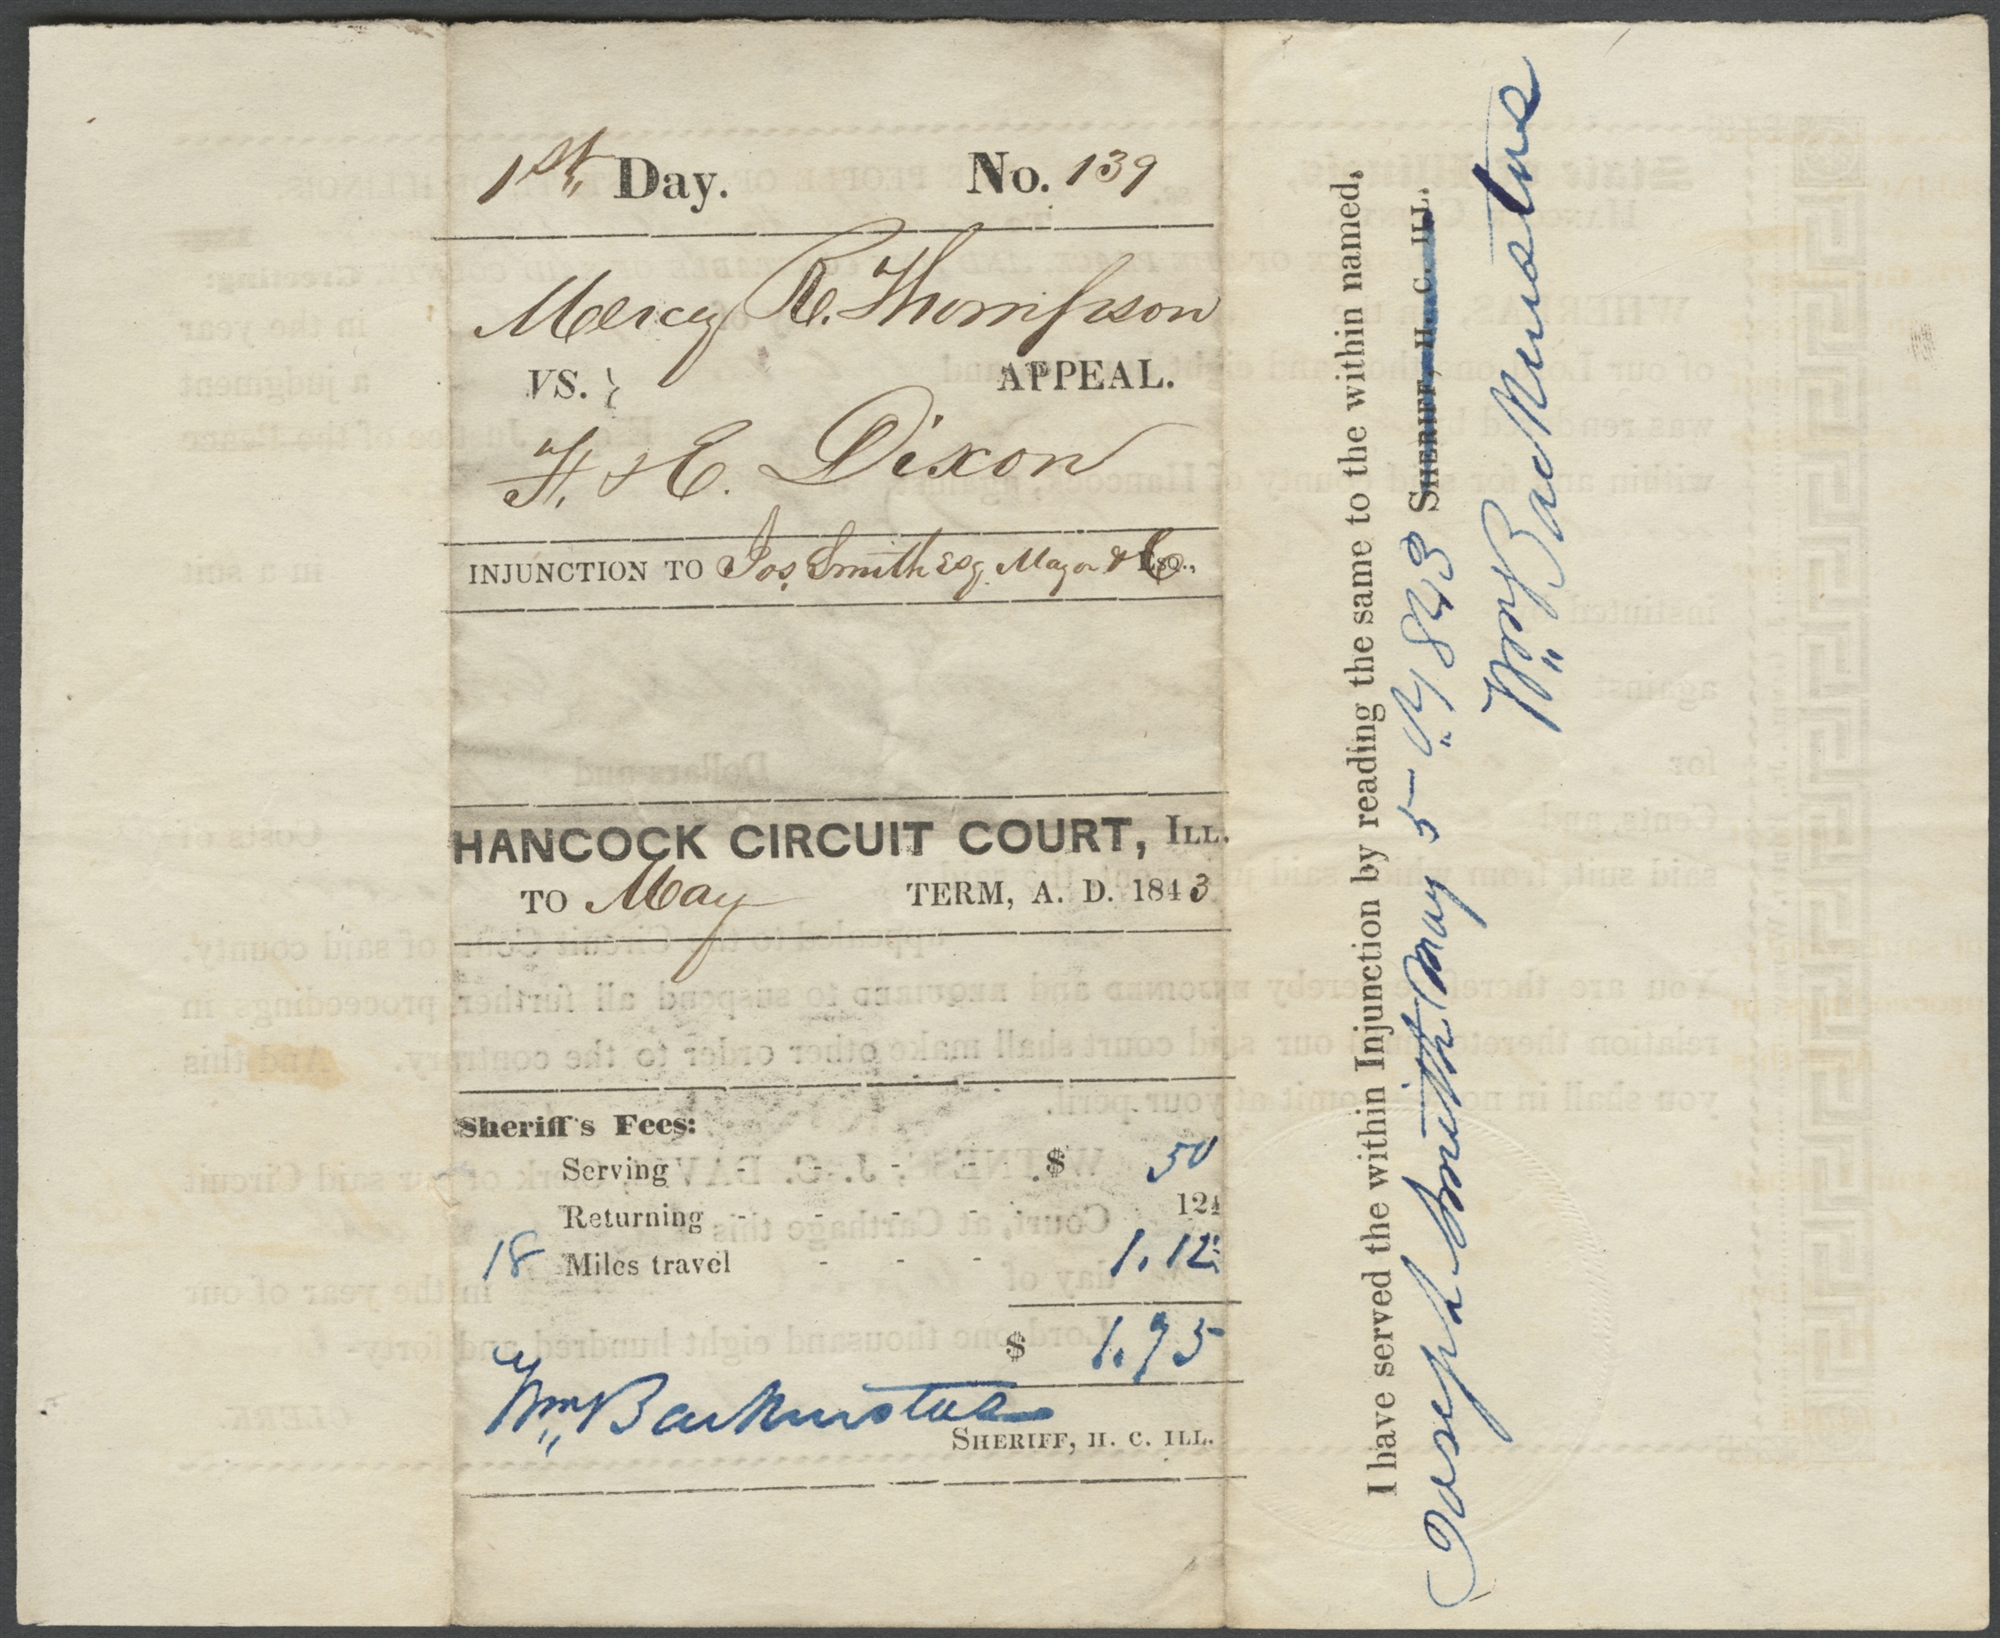 1st Day. No. 139
Mercy R. Thompson
VS. } APPEAL.
F. & E. Dixon
INJUNCTION TO Jos. Smith Esq. Mayor &C Esq.,
HANCOCK CIRCUIT COURT, ILL.
TO May TERM, A. D. 1843
Sheriff's Fees:
Serving - - - - $ 50
Returning - - - - 12½
18 Miles travel - - - 1.12½
$ 1.75
Wm Backenstos
SHERIFF, H. C. ILL.
I have served the within Injunction by reading the same to the within named,
Joseph Smith May 5th 1843 SHERIFF, H. C. ILL.
Wm Backenstos